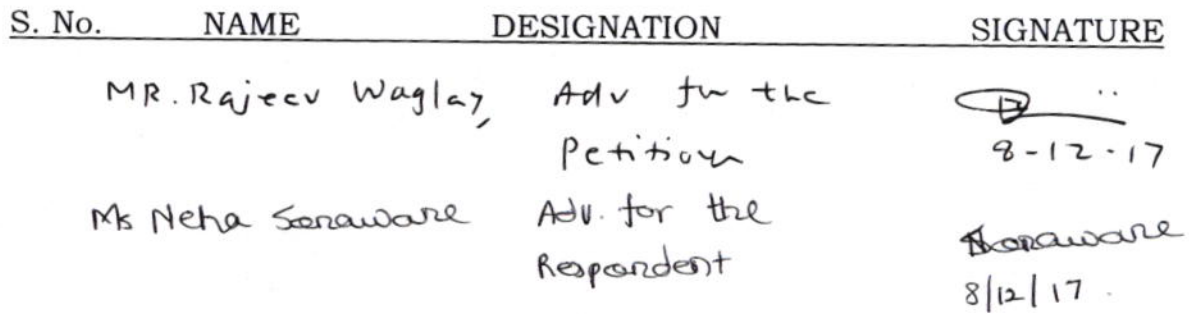 S. No. NAME DESIGNATION SIGNATURE
MR. Rajeev Waglay, Adv for the
Petitioner 8-12-17
Ms Neha Sonaware Adv. for the Sonaware
Respondent 8/12/17.